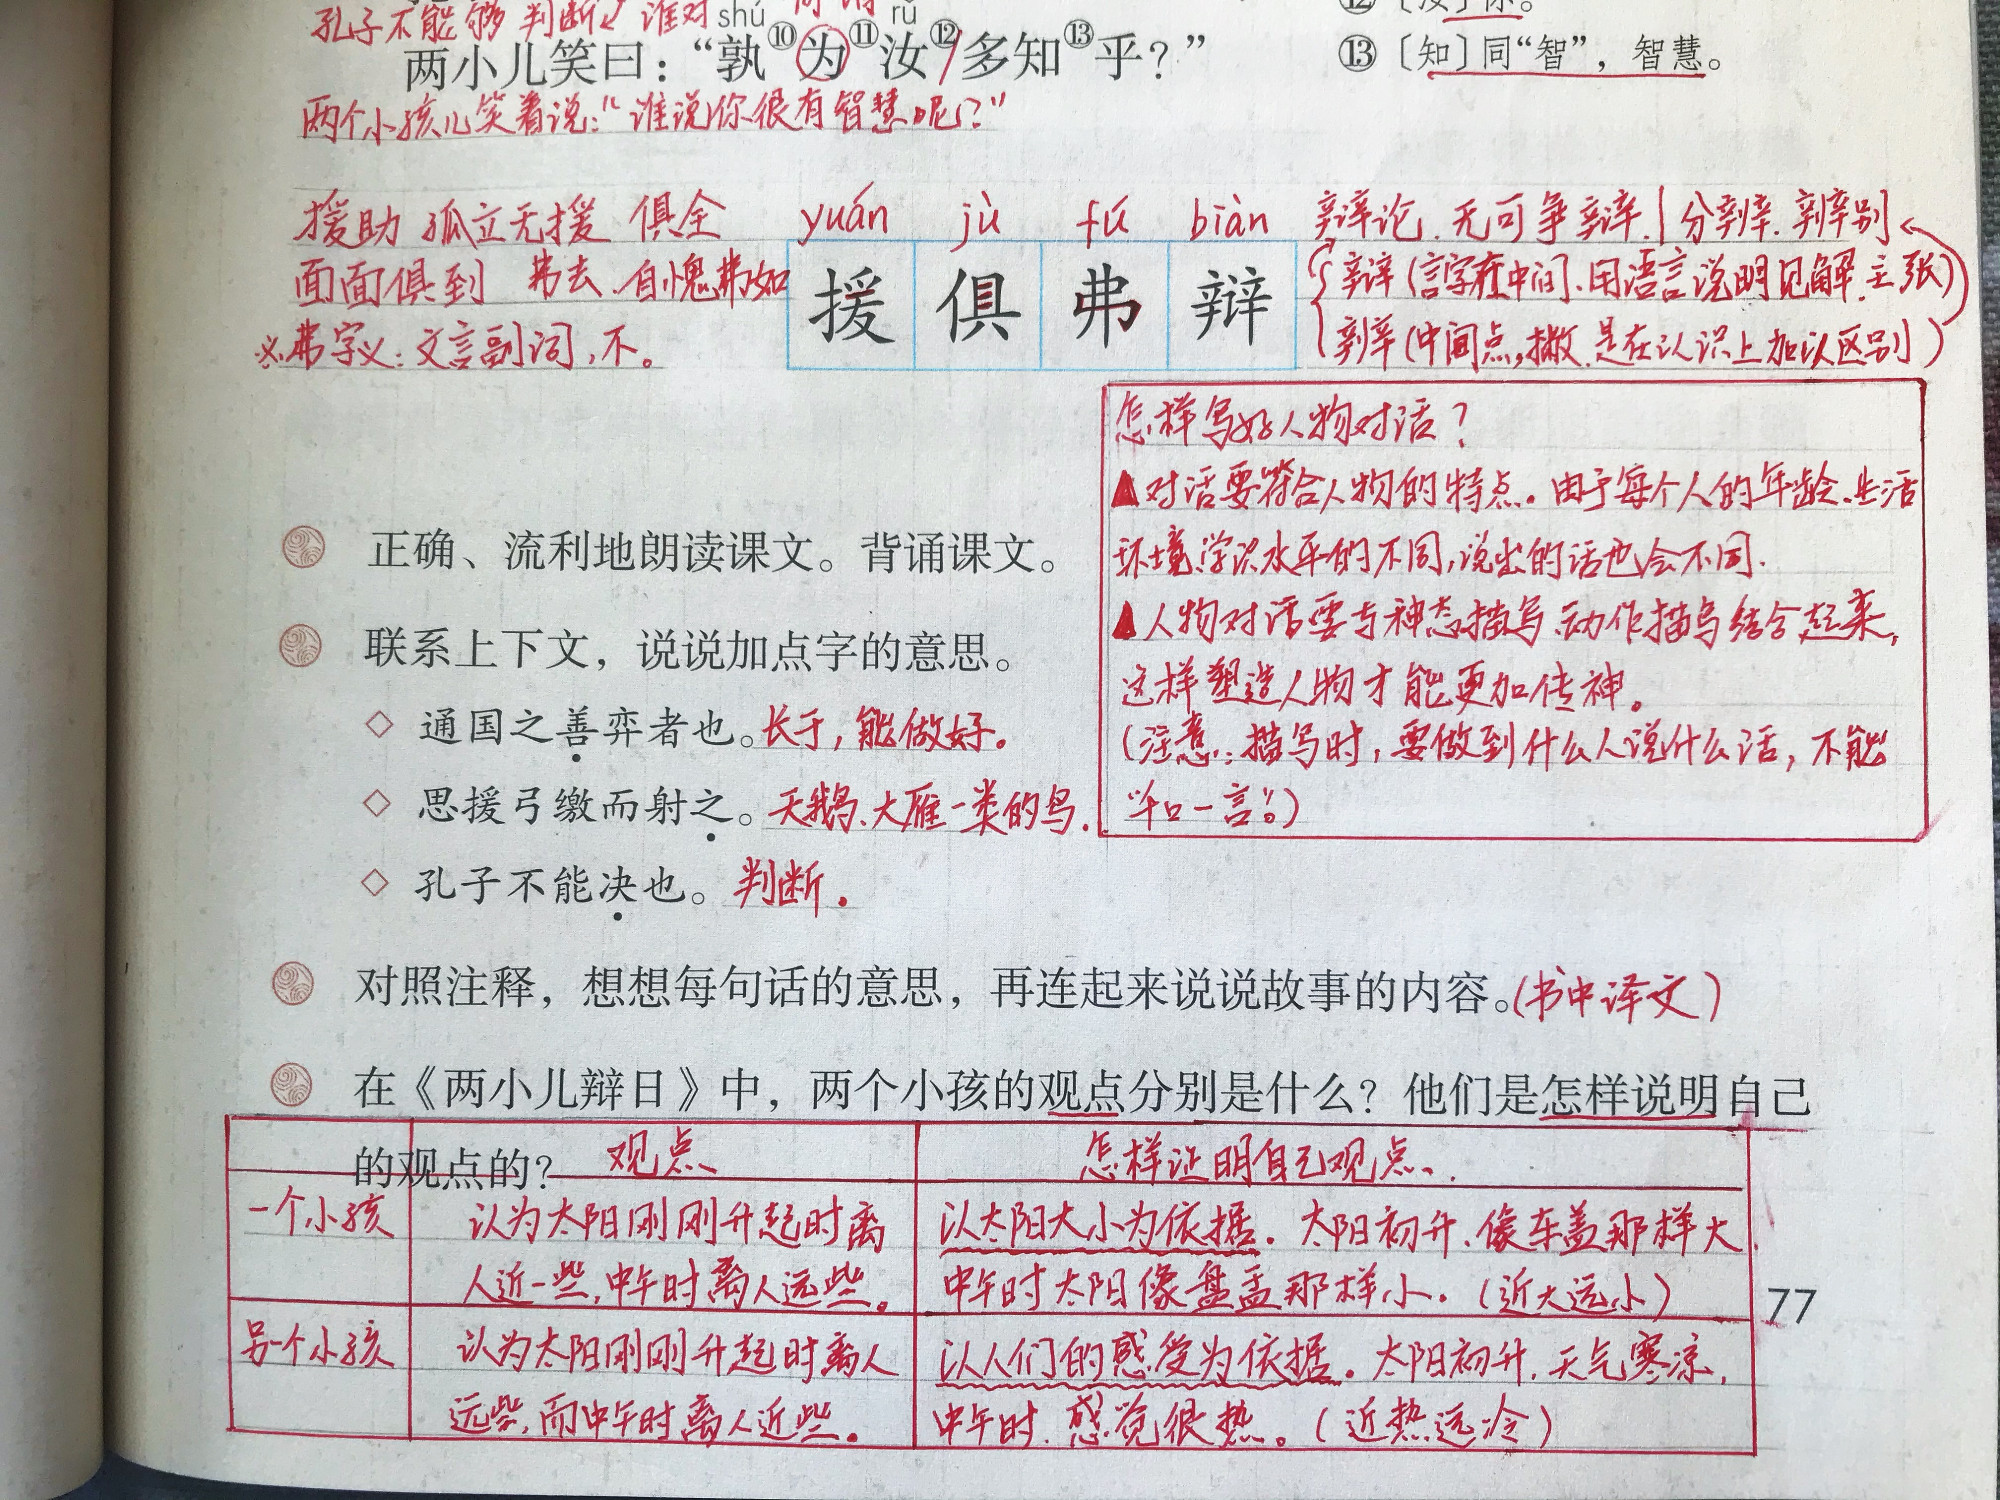 孔子不能够判断谁对
shú rǔ
两小儿笑曰：“孰⑩为⑪汝⑫/多知⑬乎？”
⑬〔知〕同“智”，智慧。
两个小孩儿笑着说:“谁说你很有智慧呢?”
援助 孤立无援 俱全
面面俱到 弗去.自愧弗如
※弗字义:文言副词,不。
yuán jù fú biàn
援 俱 弗 辩
辩论.无可争辩.|分辨.辨别
辩(言字在中间.用语言说明见解.主张)
辨(中间点,撇.是在认识上加以区别)
怎样写好人物对话?
▲对话要符合人物的特点。由于每个人的年龄、生活
环境、学识水平的不同,说出的话也会不同.
▲人物对话要与神态描写.动作描写结合起来,
这样塑造人物才能更加传神。
(注意:描写时,要做到什么人说什么话,不能
“千口一言”。)
正确、流利地朗读课文。背诵课文。
联系上下文，说说加点字的意思。
◇ 通国之善弈者也。长于,能做好。
◇ 思援弓缴而射之。天鹅、大雁一类的鸟.
◇ 孔子不能决也。判断.
对照注释，想想每句话的意思，再连起来说说故事的内容。(书中译文)
在《两小儿辩日》中，两个小孩的观点分别是什么？他们是怎样说明自己
的观点的？
观点 怎样证明自己观点.
一个小孩 认为太阳刚刚升起时离 以太阳大小为依据。太阳初升.像车盖那样大.
人近一些,中午时离人远些。 中午时太阳像盘盂那样小。(近大远小)
77
另一个小孩 认为太阳刚刚升起时离人 以人们的感受为依据。太阳初升,天气寒凉,
远些,而中午时离人近些。 中午时.感觉很热。(近热远冷)